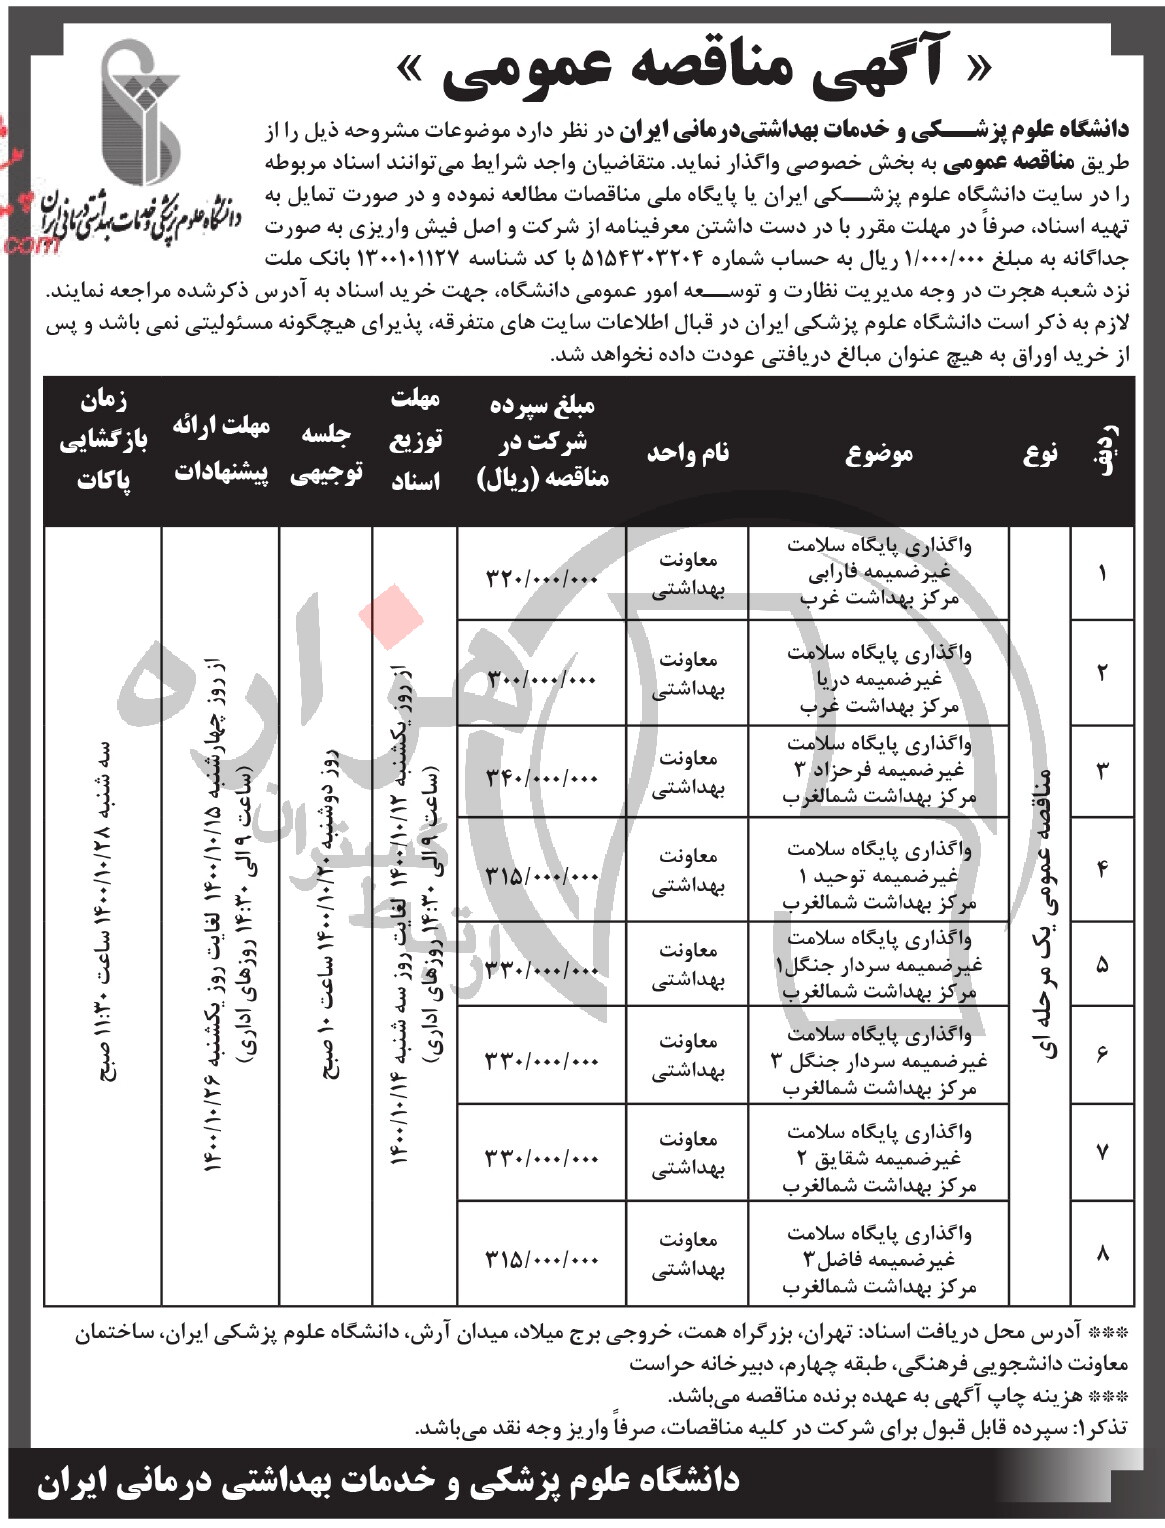 « آگهی مناقصه عمومی »
دانشگاه علوم پزشکی و خدمات بهداشتی درمانی ایران
دانشگاه علوم پزشـــکی و خدمات بهداشتی‌درمانی ایران در نظر دارد موضوعات مشروحه ذیل را از
طریق مناقصه عمومی به بخش خصوصی واگذار نماید. متقاضیان واجد شرایط می‌توانند اسناد مربوطه
را در سایت دانشگاه علوم پزشـــکی ایران یا پایگاه ملی مناقصات مطالعه نموده و در صورت تمایل به
تهیه اسناد، صرفاً در مهلت مقرر با در دست داشتن معرفینامه از شرکت و اصل فیش واریزی به صورت
جداگانه به مبلغ ۱/۰۰۰/۰۰۰ ریال به حساب شماره ۵۱۵۴۳۰۳۲۰۴ با کد شناسه ۱۳۰۰۱۰۱۱۲۷ بانک ملت
نزد شعبه هجرت در وجه مدیریت نظارت و توســـعه امور عمومی دانشگاه، جهت خرید اسناد به آدرس ذکرشده مراجعه نمایند.
لازم به ذکر است دانشگاه علوم پزشکی ایران در قبال اطلاعات سایت های متفرقه، پذیرای هیچگونه مسئولیتی نمی باشد و پس
از خرید اوراق به هیچ عنوان مبالغ دریافتی عودت داده نخواهد شد.
ردیف
نوع
موضوع
نام واحد
مبلغ سپرده
شرکت در
مناقصه (ریال)
مهلت
توزیع
اسناد
جلسه
توجیهی
مهلت ارائه
پیشنهادات
زمان
بازگشایی
پاکات
۱
واگذاری پایگاه سلامت
غیرضمیمه فارابی
مرکز بهداشت غرب
معاونت
بهداشتی
۳۲۰/۰۰۰/۰۰۰
۲
واگذاری پایگاه سلامت
غیرضمیمه دریا
مرکز بهداشت غرب
معاونت
بهداشتی
۳۰۰/۰۰۰/۰۰۰
۳
واگذاری پایگاه سلامت
غیرضمیمه فرحزاد ۳
مرکز بهداشت شمالغرب
معاونت
بهداشتی
۳۴۰/۰۰۰/۰۰۰
۴
واگذاری پایگاه سلامت
غیرضمیمه توحید ۱
مرکز بهداشت شمالغرب
معاونت
بهداشتی
۳۱۵/۰۰۰/۰۰۰
۵
واگذاری پایگاه سلامت
غیرضمیمه سردار جنگل۱
مرکز بهداشت شمالغرب
معاونت
بهداشتی
۳۳۰/۰۰۰/۰۰۰
۶
واگذاری پایگاه سلامت
غیرضمیمه سردار جنگل ۳
مرکز بهداشت شمالغرب
معاونت
بهداشتی
۳۳۰/۰۰۰/۰۰۰
۷
واگذاری پایگاه سلامت
غیرضمیمه شقایق ۲
مرکز بهداشت شمالغرب
معاونت
بهداشتی
۳۳۰/۰۰۰/۰۰۰
۸
واگذاری پایگاه سلامت
غیرضمیمه فاضل۳
مرکز بهداشت شمالغرب
معاونت
بهداشتی
۳۱۵/۰۰۰/۰۰۰
مناقصه عمومی یک مرحله ای
از روز یکشنبه ۱۴۰۰/۱۰/۱۲ لغایت روز سه شنبه ۱۴۰۰/۱۰/۱۴
(ساعت ۹ الی ۱۴:۳۰ روزهای اداری)
روز دوشنبه ۱۴۰۰/۱۰/۲۰ ساعت ۱۰ صبح
از روز چهارشنبه ۱۴۰۰/۱۰/۱۵ لغایت روز یکشنبه ۱۴۰۰/۱۰/۲۶
(ساعت ۹ الی ۱۴:۳۰ روزهای اداری)
سه شنبه ۱۴۰۰/۱۰/۲۸ ساعت ۱۱:۳۰ صبح
هزاره
ارتباط گستران
com
*** آدرس محل دریافت اسناد: تهران، بزرگراه همت، خروجی برج میلاد، میدان آرش، دانشگاه علوم پزشکی ایران، ساختمان
معاونت دانشجویی فرهنگی، طبقه چهارم، دبیرخانه حراست
*** هزینه چاپ آگهی به عهده برنده مناقصه می‌باشد.
تذکر۱: سپرده قابل قبول برای شرکت در کلیه مناقصات، صرفاً واریز وجه نقد می‌باشد.
دانشگاه علوم پزشکی و خدمات بهداشتی درمانی ایران